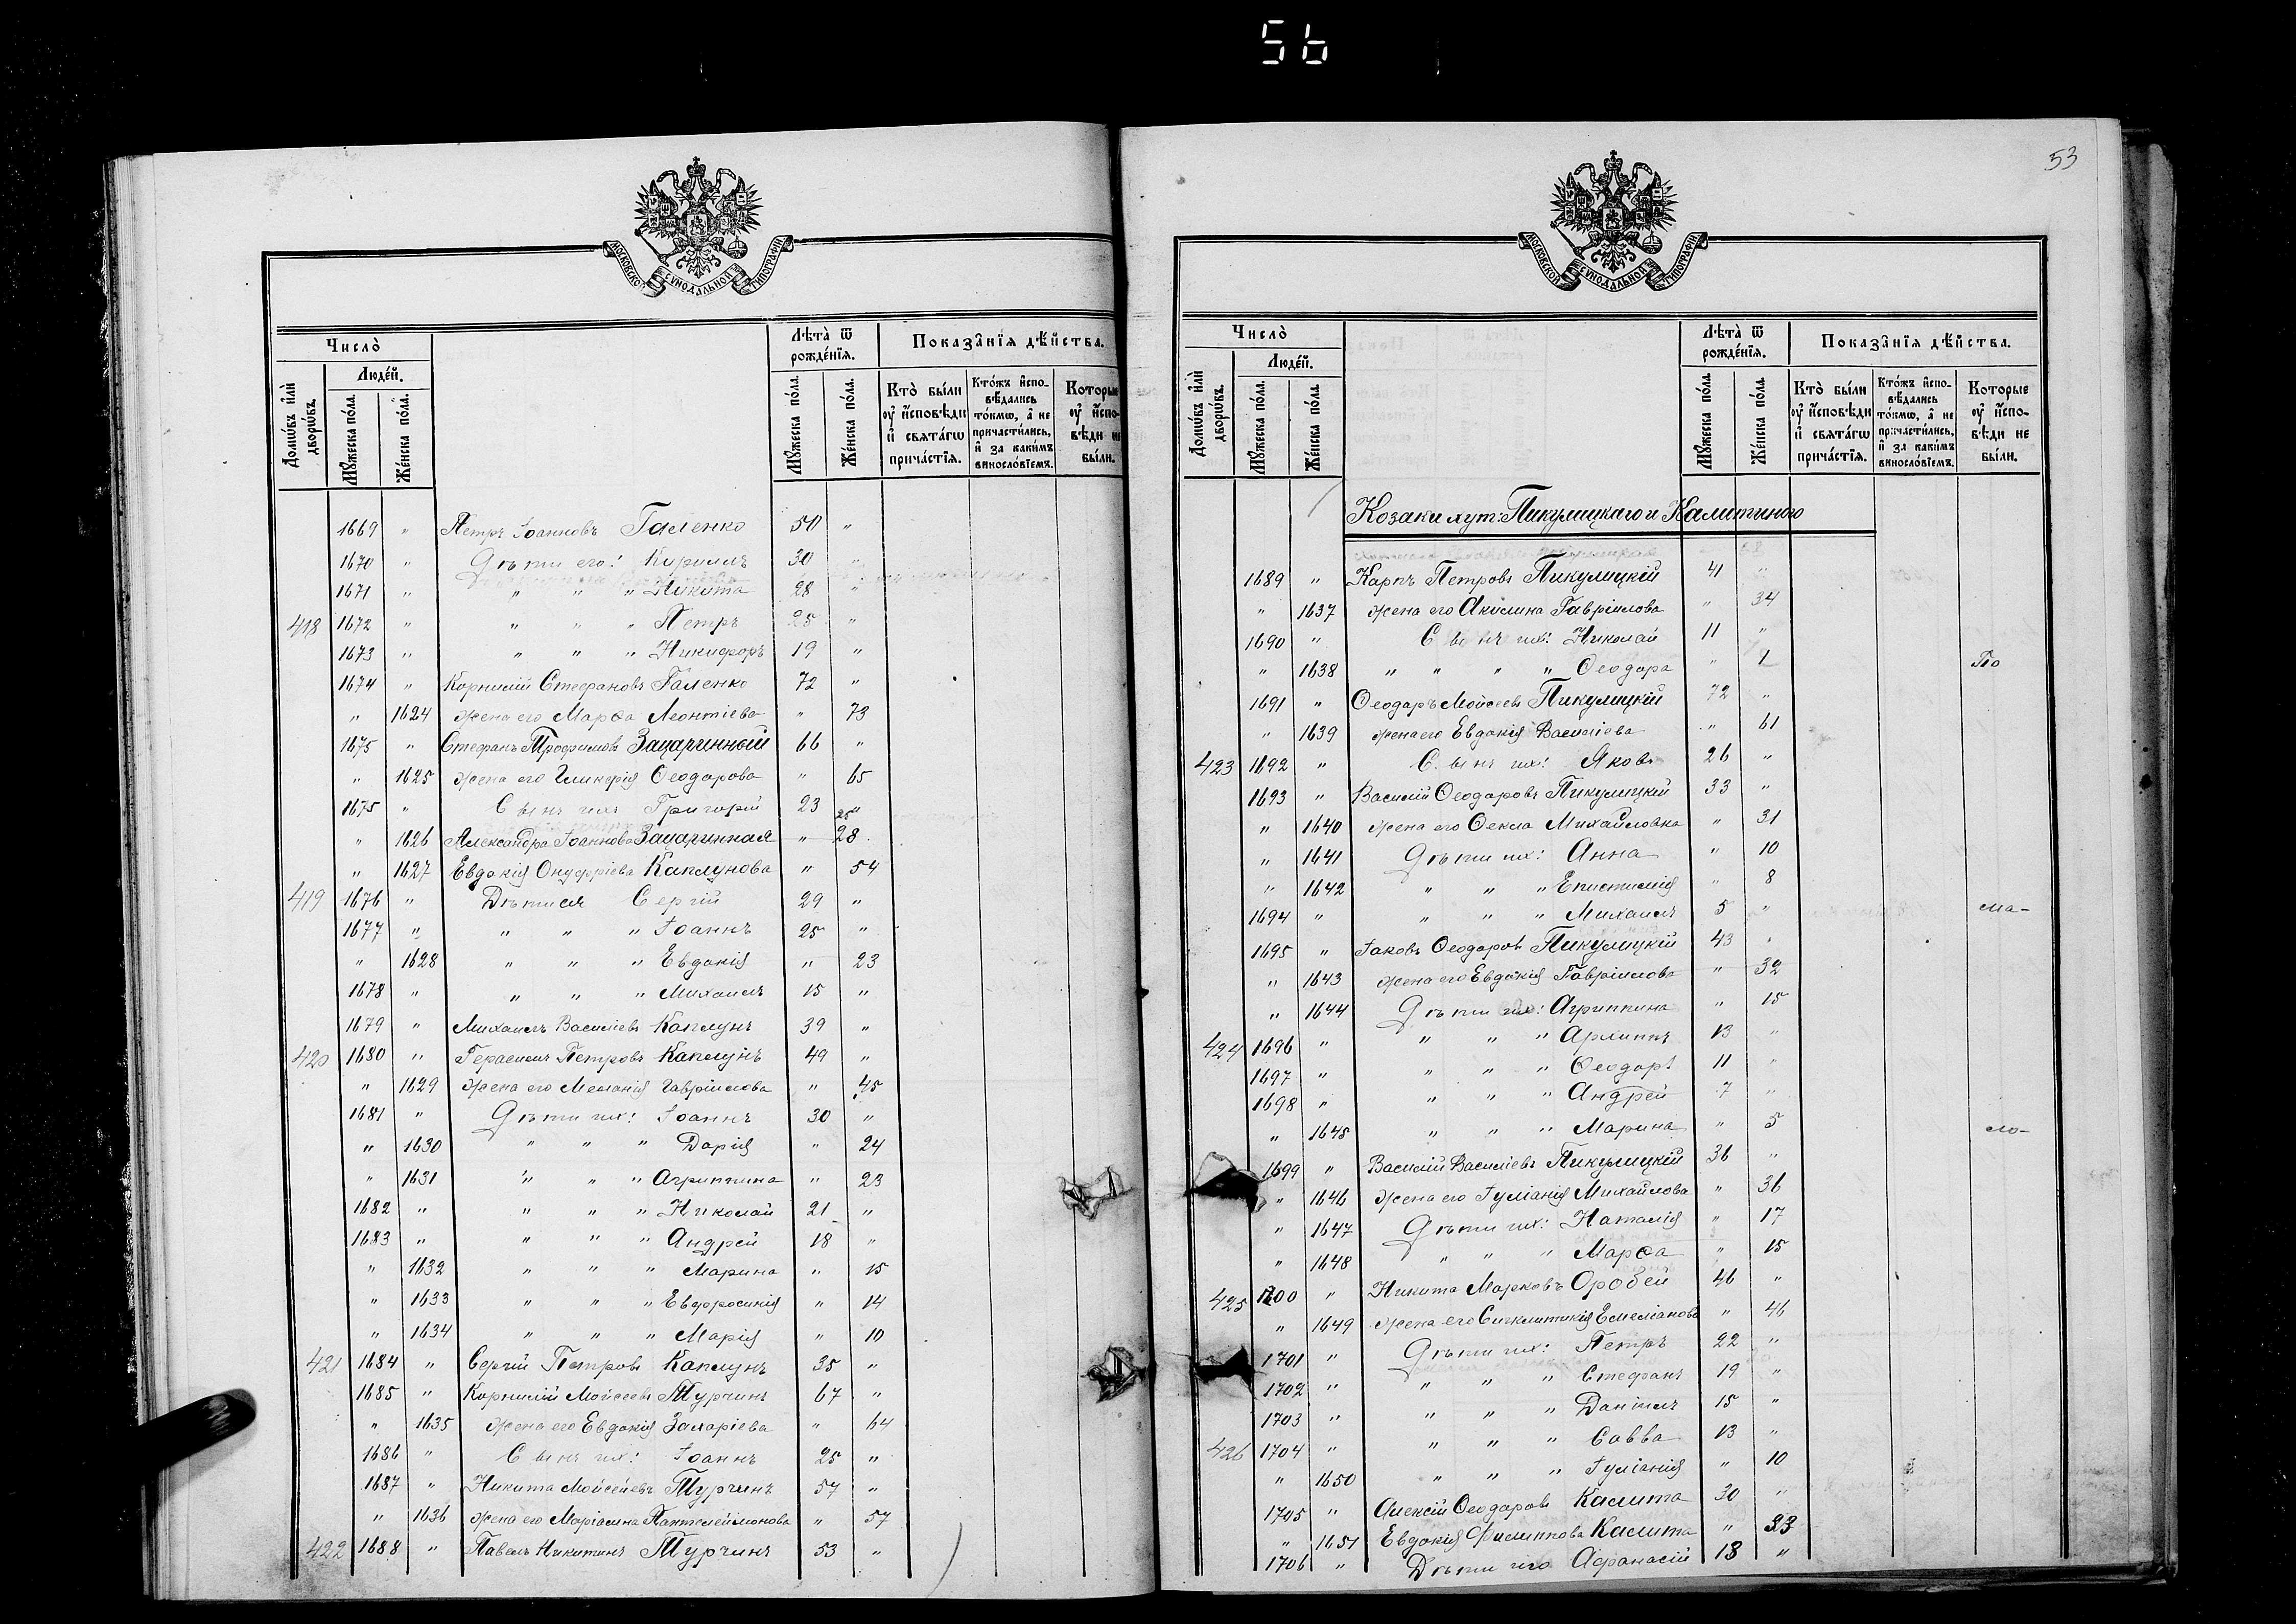 56
МОСКОВСКОЙ СѴНОДАЛЬНОЙ ТИПОГРАФІИ
Число̀
Людей.
Домѡвъ илѝ дворѡвъ.
Мꙋжеска пола.
Женска пола.
Лѣта̀ ѿ рожденїѧ.
Мꙋжеска пола.
Женска пола.
Показанїѧ дѣйства.
Кто̀ были ᲂу҆ исповѣди и свѧтагѡ причастїѧ.
Ктожъ исповѣдались токмѡ, а не причастились, и за какимъ винословїемъ.
Которые ᲂу҆ исповѣди не были.
1669 " Петръ Іоанновъ Галенко 50 "
1670 " Дѣти его: Кириллъ 30 "
1671 " " " " Никита 28 "
418 1672 " " " " Петръ 25 "
1673 " " " " Никифоръ 19 "
1674 " Корнилій Стефановъ Галенко 72 "
" 1624 жена его Марѳа Леонтіева " 73
1675 " Стефанъ Трофимовъ Зацаринный 66 "
" 1625 жена его Гликерія Ѳеодорова " 65
1675 " Сынъ ихъ Григорій 23 "
" 1626 Александра Іоаннова Зацаринная " 28
" 1627 Евдокія Онуфріева Каплунова " 54
419 1676 " Дѣти ея Сергій 29 "
1677 " " " " Іоаннъ 25 "
" 1628 " " " Евдокія " 23
1678 " " " " Михаилъ 15 "
1679 " Михаилъ Василіевъ Каплунъ 39 "
420 1680 " Герасимъ Петровъ Каплунъ 49 "
" 1629 жена его Меланія Гавріилова " 45
1681 " Дѣти ихъ: Іоаннъ 30 "
" 1630 " " " Дарія " 24
" 1631 " " " Агриппина " 23
1682 " " " " Николай 21 "
1683 " " " " Андрей 18 "
" 1632 " " " Марина " 15
" 1633 " " " Евфросинія " 14
" 1634 " " " Марія " 10
421 1684 " Сергій Петровъ Каплунъ 35 "
1685 " Корнилій Мойсеевъ Турчинъ 67 "
" 1635 жена его Евдокія Захаріева " 64
1686 " Сынъ ихъ: Іоаннъ 25 "
1687 " Никита Мойсейевъ Турчинъ 57 "
" 1636 жена его Маріамна Пантелеймонова " 57
422 1688 " Павелъ Никитинъ Турчинъ 53 "
53
МОСКОВСКОЙ СѴНОДАЛЬНОЙ ТИПОГРАФІИ
Число̀
Людей.
Домѡвъ илѝ дворѡвъ.
Мꙋжеска пола.
Женска пола.
Лѣта̀ ѿ рожденїѧ.
Мꙋжеска пола.
Женска пола.
Показанїѧ дѣйства.
Кто̀ были ᲂу҆ исповѣди и свѧтагѡ причастїѧ.
Ктожъ исповѣдались токмѡ, а не причастились, и за какимъ винословїемъ.
Которые ᲂу҆ исповѣди не были.
Козаки хут: Пикулицкаго и Калитиного
1689 " Карпъ Петровъ Пикулицкій 41 "
" 1637 жена его Акилина Гавріилова " 34
1690 " Сынъ ихъ: Николай 11 "
" 1638 " " " " Ѳеодора " 1 По
1691 " Ѳеодоръ Мойсеевъ Пикулицкій 72 "
" 1639 жена его Евдокія Василіева " 61
423 1692 " Сынъ ихъ: Яковъ 26 "
1693 " Василій Ѳеодоровъ Пикулицкій 33 "
" 1640 жена его Ѳекла Михайловна " 31
" 1641 Дѣти ихъ: Анна " 10
" 1642 " " " Епистимія " 8
1694 " " " " Михаилъ 5 " ма-
1695 " Іаковъ Ѳеодоровъ Пикулицкій 43 "
" 1643 жена его Евдокія Гавріилова " 32
" 1644 Дѣти ихъ: Агриппина " 15
424 1696 " " " " Архипъ 13 "
1697 " " " " Ѳеодоръ 11 "
1698 " " " " Андрей 7 "
" 1645 " " " Марина " 5 ло-
1699 " Василій Василіевъ Пикулицкій 36 "
" 1646 жена его Іуліанія Михайлова " 36
" 1647 Дѣти ихъ: Наталія " 17
" 1648 " " " Марѳа " 15
425 1700 " Никита Марковъ Оробей 46 "
" 1649 жена его Сигклитикія Емеліанова " 46
1701 " Дѣти ихъ: Петръ 22 "
1702 " " " " Стефанъ 19 "
1703 " " " " Даніилъ 15 "
426 1704 " " " " Савва 13 "
" 1650 " " " Іуліанія " 10
1705 " Алексій Ѳеодоровъ Калита 30 "
" 1651 Евдокія Филиппова Калита " 33
1706 " Дѣти его Афанасій 13 "